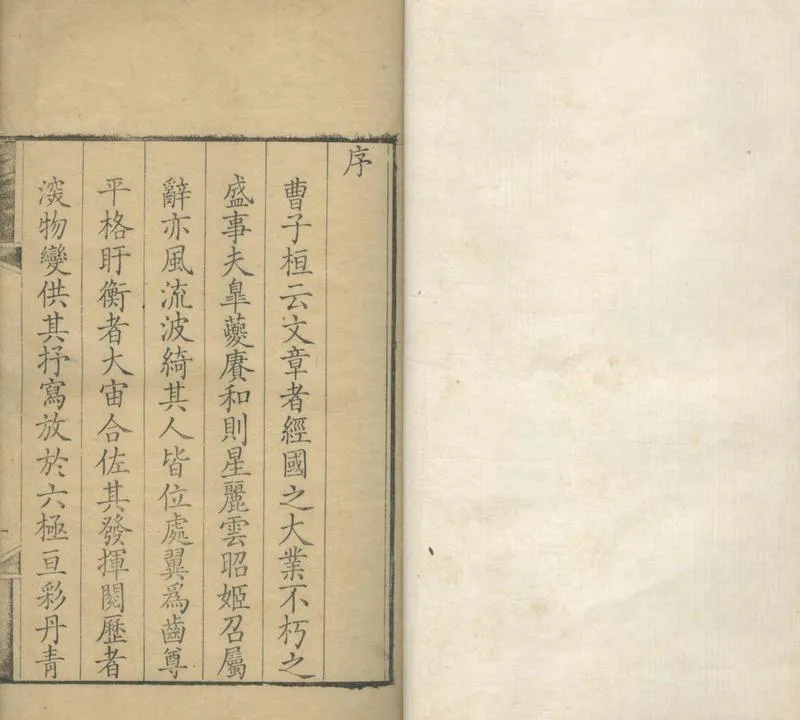 序
曹子桓云文章者經國之大業不朽之
盛事夫臯夔賡和則星麗雲昭姬召屬
辭亦風流波綺其人皆位處翼爲齒尊
平格盱衡者大宙合佐其發揮閱歷者
深物變供其抒寫放於六極亘彩丹青